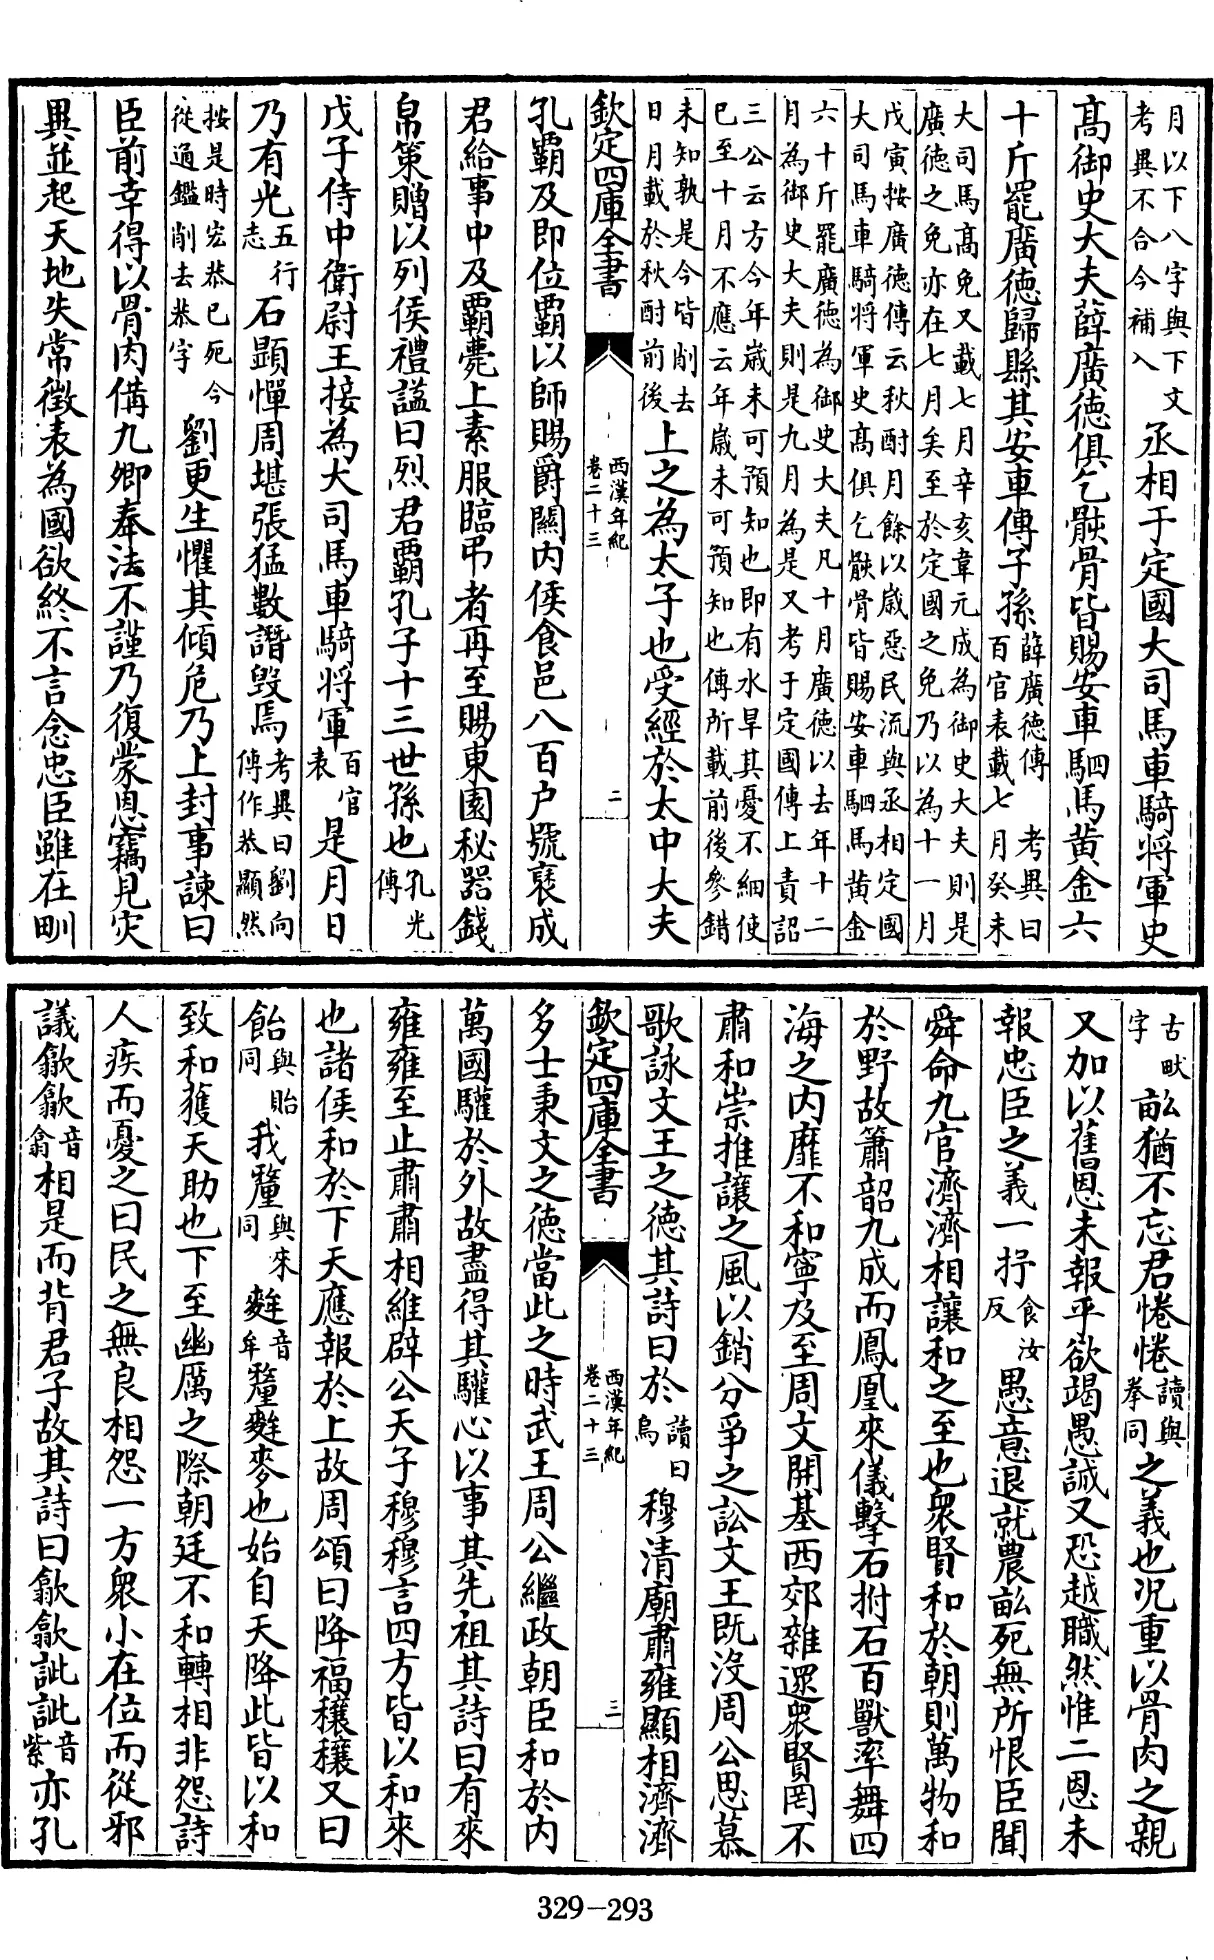 月以下八字與下文考異不合今補入丞相于定國大司馬車騎將軍史
髙御史大夫薛廣徳俱乞骸骨皆賜安車駟馬黄金六
十斤罷廣徳歸縣其安車傳子孫薛廣徳傳 考異曰百官表載七月癸未
大司馬髙免又載七月辛亥韋元成為御史大夫則是
廣徳之免亦在七月矣至於定國之免乃以為十一月
戊寅按廣徳傳云秋酎月餘以嵗惡民流與丞相定國
大司馬車騎將軍史髙俱乞骸骨皆賜安車駟馬黄金
六十斤罷廣徳為御史大夫凡十月廣徳以去年十二
月為御史大夫則是九月為是又考于定國傳上責詔
三公云方今年嵗未可預知也即有水旱其憂不細使
已至十月不應云年嵗未可預知也傳所載前後參錯
未知孰是今皆削去日月載於秋酎前後上之為太子也受經於太中大夫
欽定四庫全書 西漢年紀 卷二十三 二
孔霸及即位霸以師賜爵關内侯食邑八百户號褒成
君給事中及霸薨上素服臨弔者再至賜東園秘器錢
帛策贈以列侯禮諡曰烈君霸孔子十三世孫也孔光傳
戊子侍中衛尉王接為大司馬車騎將軍百官表是月日
乃有光五行志石顯憚周堪張猛數譖毁焉考異曰劉向傳作恭顯然
按是時宏恭已死今從通鑑削去恭字劉更生懼其傾危乃上封事諫曰
臣前幸得以骨肉備九卿奉法不謹乃復蒙恩竊見災
異並起天地失常徴表為國欲終不言念忠臣雖在甽
古畎字畝猶不忘君惓惓讀與拳同之義也况重以骨肉之親
又加以舊恩未報乎欲竭愚誠又恐越職然惟二恩未
報忠臣之義一抒食汝反愚意退就農畝死無所恨臣聞
舜命九官濟濟相讓和之至也衆賢和於朝則萬物和
於野故簫韶九成而鳳凰來儀擊石拊石百獸率舞四
海之内靡不和寧及至周文開基西郊雜遝衆賢罔不
肅和崇推讓之風以銷分爭之訟文王既没周公思慕
歌詠文王之德其詩曰於讀曰烏穆清廟肅雍顯相濟濟
欽定四庫全書 西漢年紀 卷二十三 三
多士秉文之德當此之時武王周公繼政朝臣和於内
萬國驩於外故盡得其驩心以事其先祖其詩曰有來
雍雍至止肅肅相維辟公天子穆穆言四方皆以和來
也諸侯和於下天應報於上故周頌曰降福穰穰又曰
飴與貽同我釐與來同麰音牟釐麰麥也始自天降此皆以和
致和獲天助也下至幽厲之際朝廷不和轉相非怨詩
人疾而憂之曰民之無良相怨一方衆小在位而從邪
議歙歙音翕相是而背君子故其詩曰歙歙訿訿音紫亦孔
329-293